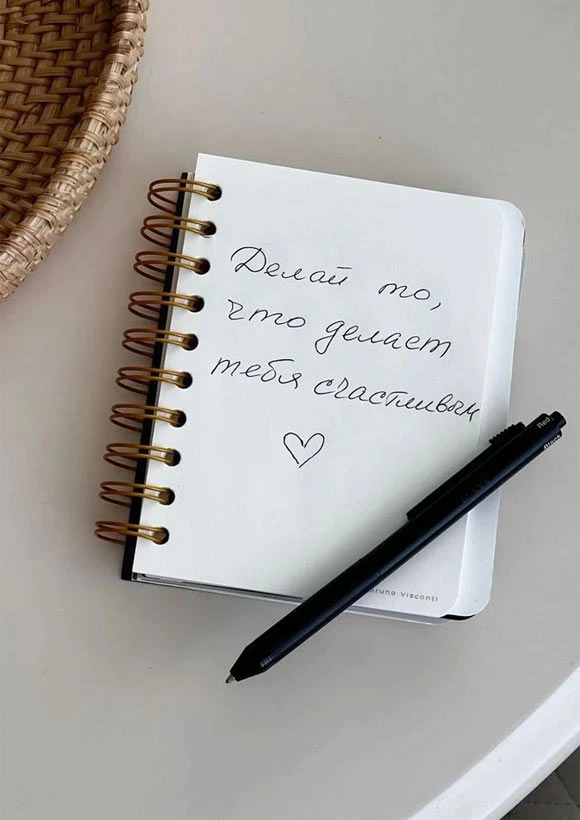 Делай то,
что делает
тебя счастливым
Red
Black
Bruno Visconti